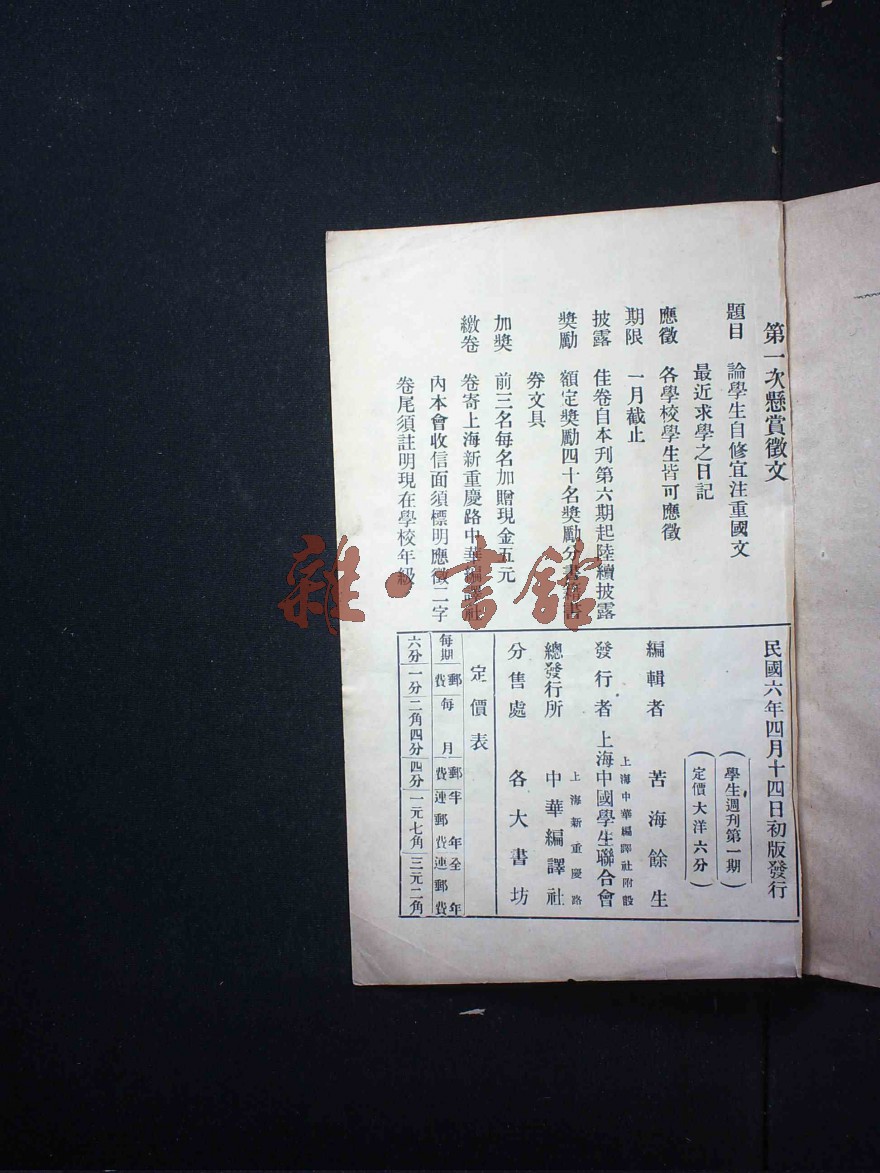 第一次懸賞徵文
題目 論學生自修宜注重國文
最近求學之日記
應徵 各學校學生皆可應徵
期限 一月截止
披露 佳卷自本刊第六期起陸續披露
獎勵 額定獎勵四十名獎勵分書籍書
券文具
加獎 前三名每名加贈現金五元
繳卷 卷寄上海新重慶路中華編譯社
內本會收信面須標明應徵二字
卷尾須註明現在學校年級
民國六年四月十四日初版發行
(學生週刊第一期)
(定價大洋六分)
編輯者 苦海餘生
上海中華編譯社附設
發行者 上海中國學生聯合會
上海新重慶路
總發行所 中華編譯社
分售處 各大書坊
定價表
每期 郵費 每月 郵費 半年連郵費 全年連郵費
六分 一分 二角四分 四分 一元七角 三元二角
雜·書館